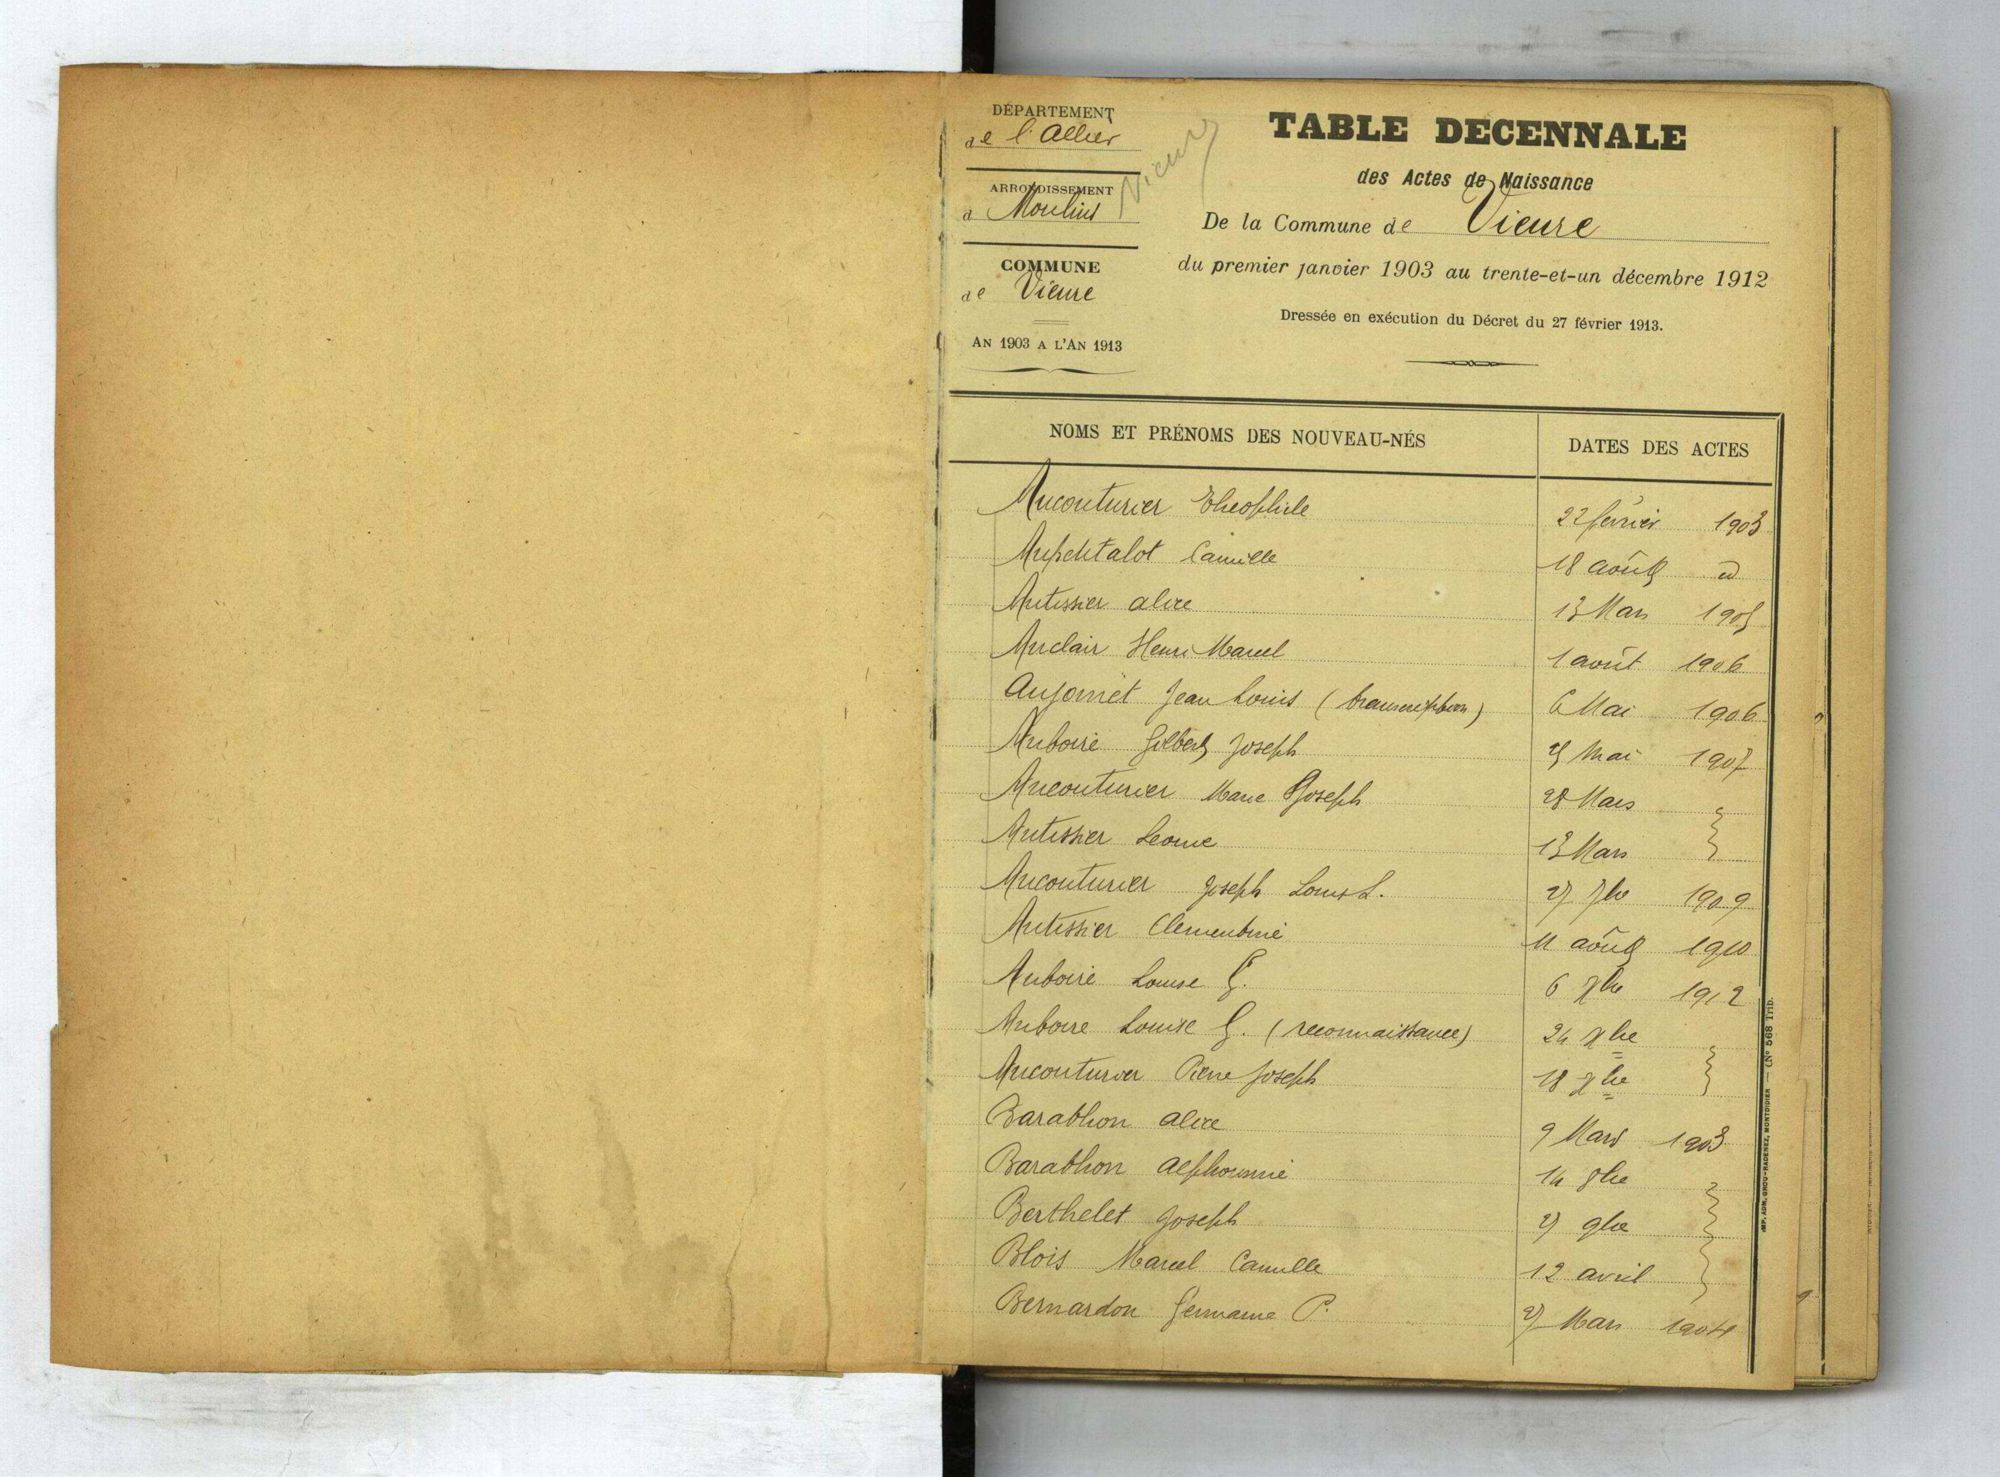 DÉPARTEMENT
de l'Allier
ARRONDISSEMENT
d Moulins
COMMUNE
de Vieure
AN 1903 A L'AN 1913
Vieure
TABLE DECENNALE
des Actes de Naissance
De la Commune de Vieure
du premier janvier 1903 au trente-et-un décembre 1912
Dressée en exécution du Décret du 27 février 1913.
NOMS ET PRÉNOMS DES NOUVEAU-NÉS DATES DES ACTES
Aucouturier Theophile 22 février 1903
Camille 18 août id
Autissier alice 13 Mars 1905
Auclair Henri Marcel 1 août 1906
Aujamet Jean Louis (transcription) 6 Mai 1906
Auboire Gilbert Joseph Mai 1907
Aucouturier Marie Joseph 28 Mars
Autissier Leonie 13 Mars
Aucouturier Joseph Louis L. 27 7bre 1909
Autissier Clementine 11 août 1910
Auboire Louise G. 6 1912
Auboire Louise G. (reconnaissance) 24 xbre
Aucouturier Pierre Joseph 18 xbre
Barathon alice 9 Mars 1903
Barathon Alphonsine 14 8bre
Berthelet Joseph 27 9bre
Blois Marcel Camille 12 avril
Bernardon Germaine P. 27 Mars 1904
IMP. ADM. GROU-RADENEZ, MONTDIDIER — (N° 568 Trib.